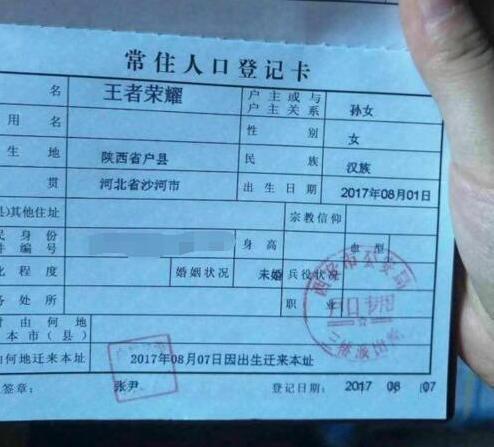 常住人口登记卡
名 王者荣耀 户主或与户主关系 孙女
用名 性别 女
生地 陕西省户县 民族 汉族
贯 河北省沙河市 出生日期 2017年08月01日
县)其他住址 宗教信仰
民身份
件编号 身高 血型
化程度 婚姻状况 未婚 兵役状况
务处所 职业
时由何地
本市(县)
由何地迁来本址 2017年08月07日因出生迁来本址
签章: 张尹 登记日期: 2017 08 07
西安市公安局
户口专用
三桥派出所